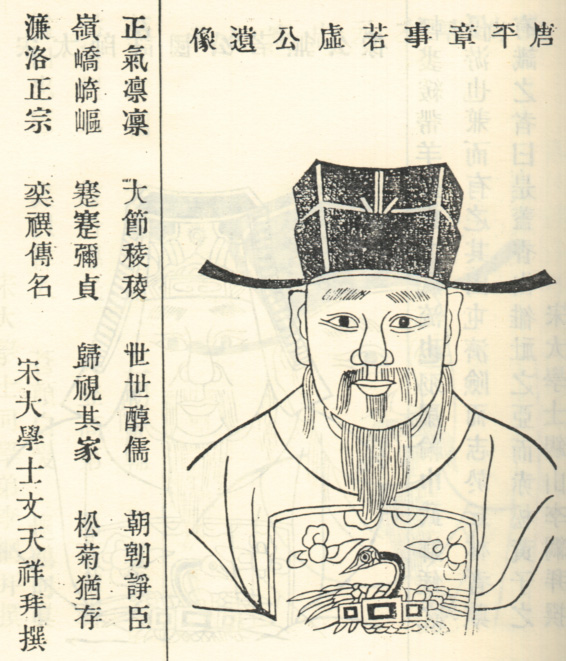 平章事若虛公遺像
正氣凛凛 大節稜稜 世世醇儒 朝朝諍臣
嶺嶠崎嶇 蹇蹇彌貞 歸視其家 松菊猶存
濂洛正宗 奕禩傳名 宋大學士文天祥拜撰